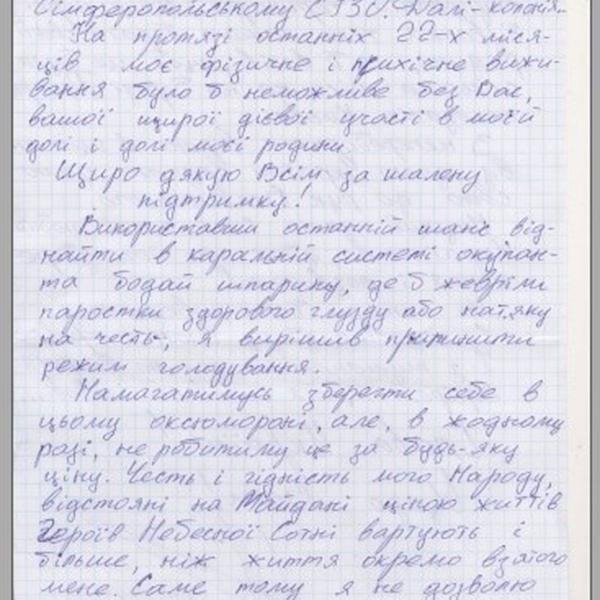 Сімферопольському СІЗО. Далі - колонія..
На протязі останніх 22-х міся-
ців моє фізичне і психічне вижи-
вання було б неможливе без Вас,
вашої щирої дієвої участі в моїй
долі і долі моєї родини.
Щиро дякую Всім за шалену
підтримку!
Використавши останній шанс від-
найти в каральній системі окупан-
та бодай шпарину, де б жевріли
паростки здорового глузду або натяку
на честь, я вирішив припинити
режим голодування.
Намагатимусь зберегти себе в
цьому оксюмороні, але, в жодному
разі, не робитиму це за будь-яку
ціну. Честь і гідність мого Народу,
відстояні на Майдані ціною життів
Героїв Небесної Сотні вартують і
більше, ніж життя окремо взятого
мене. Саме тому я не дозволю